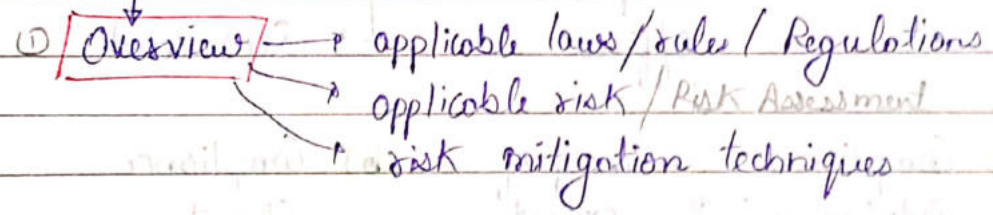 ① Overview → applicable laws/rules/Regulations
→ applicable risk/Risk Assessment
→ risk mitigation techniques